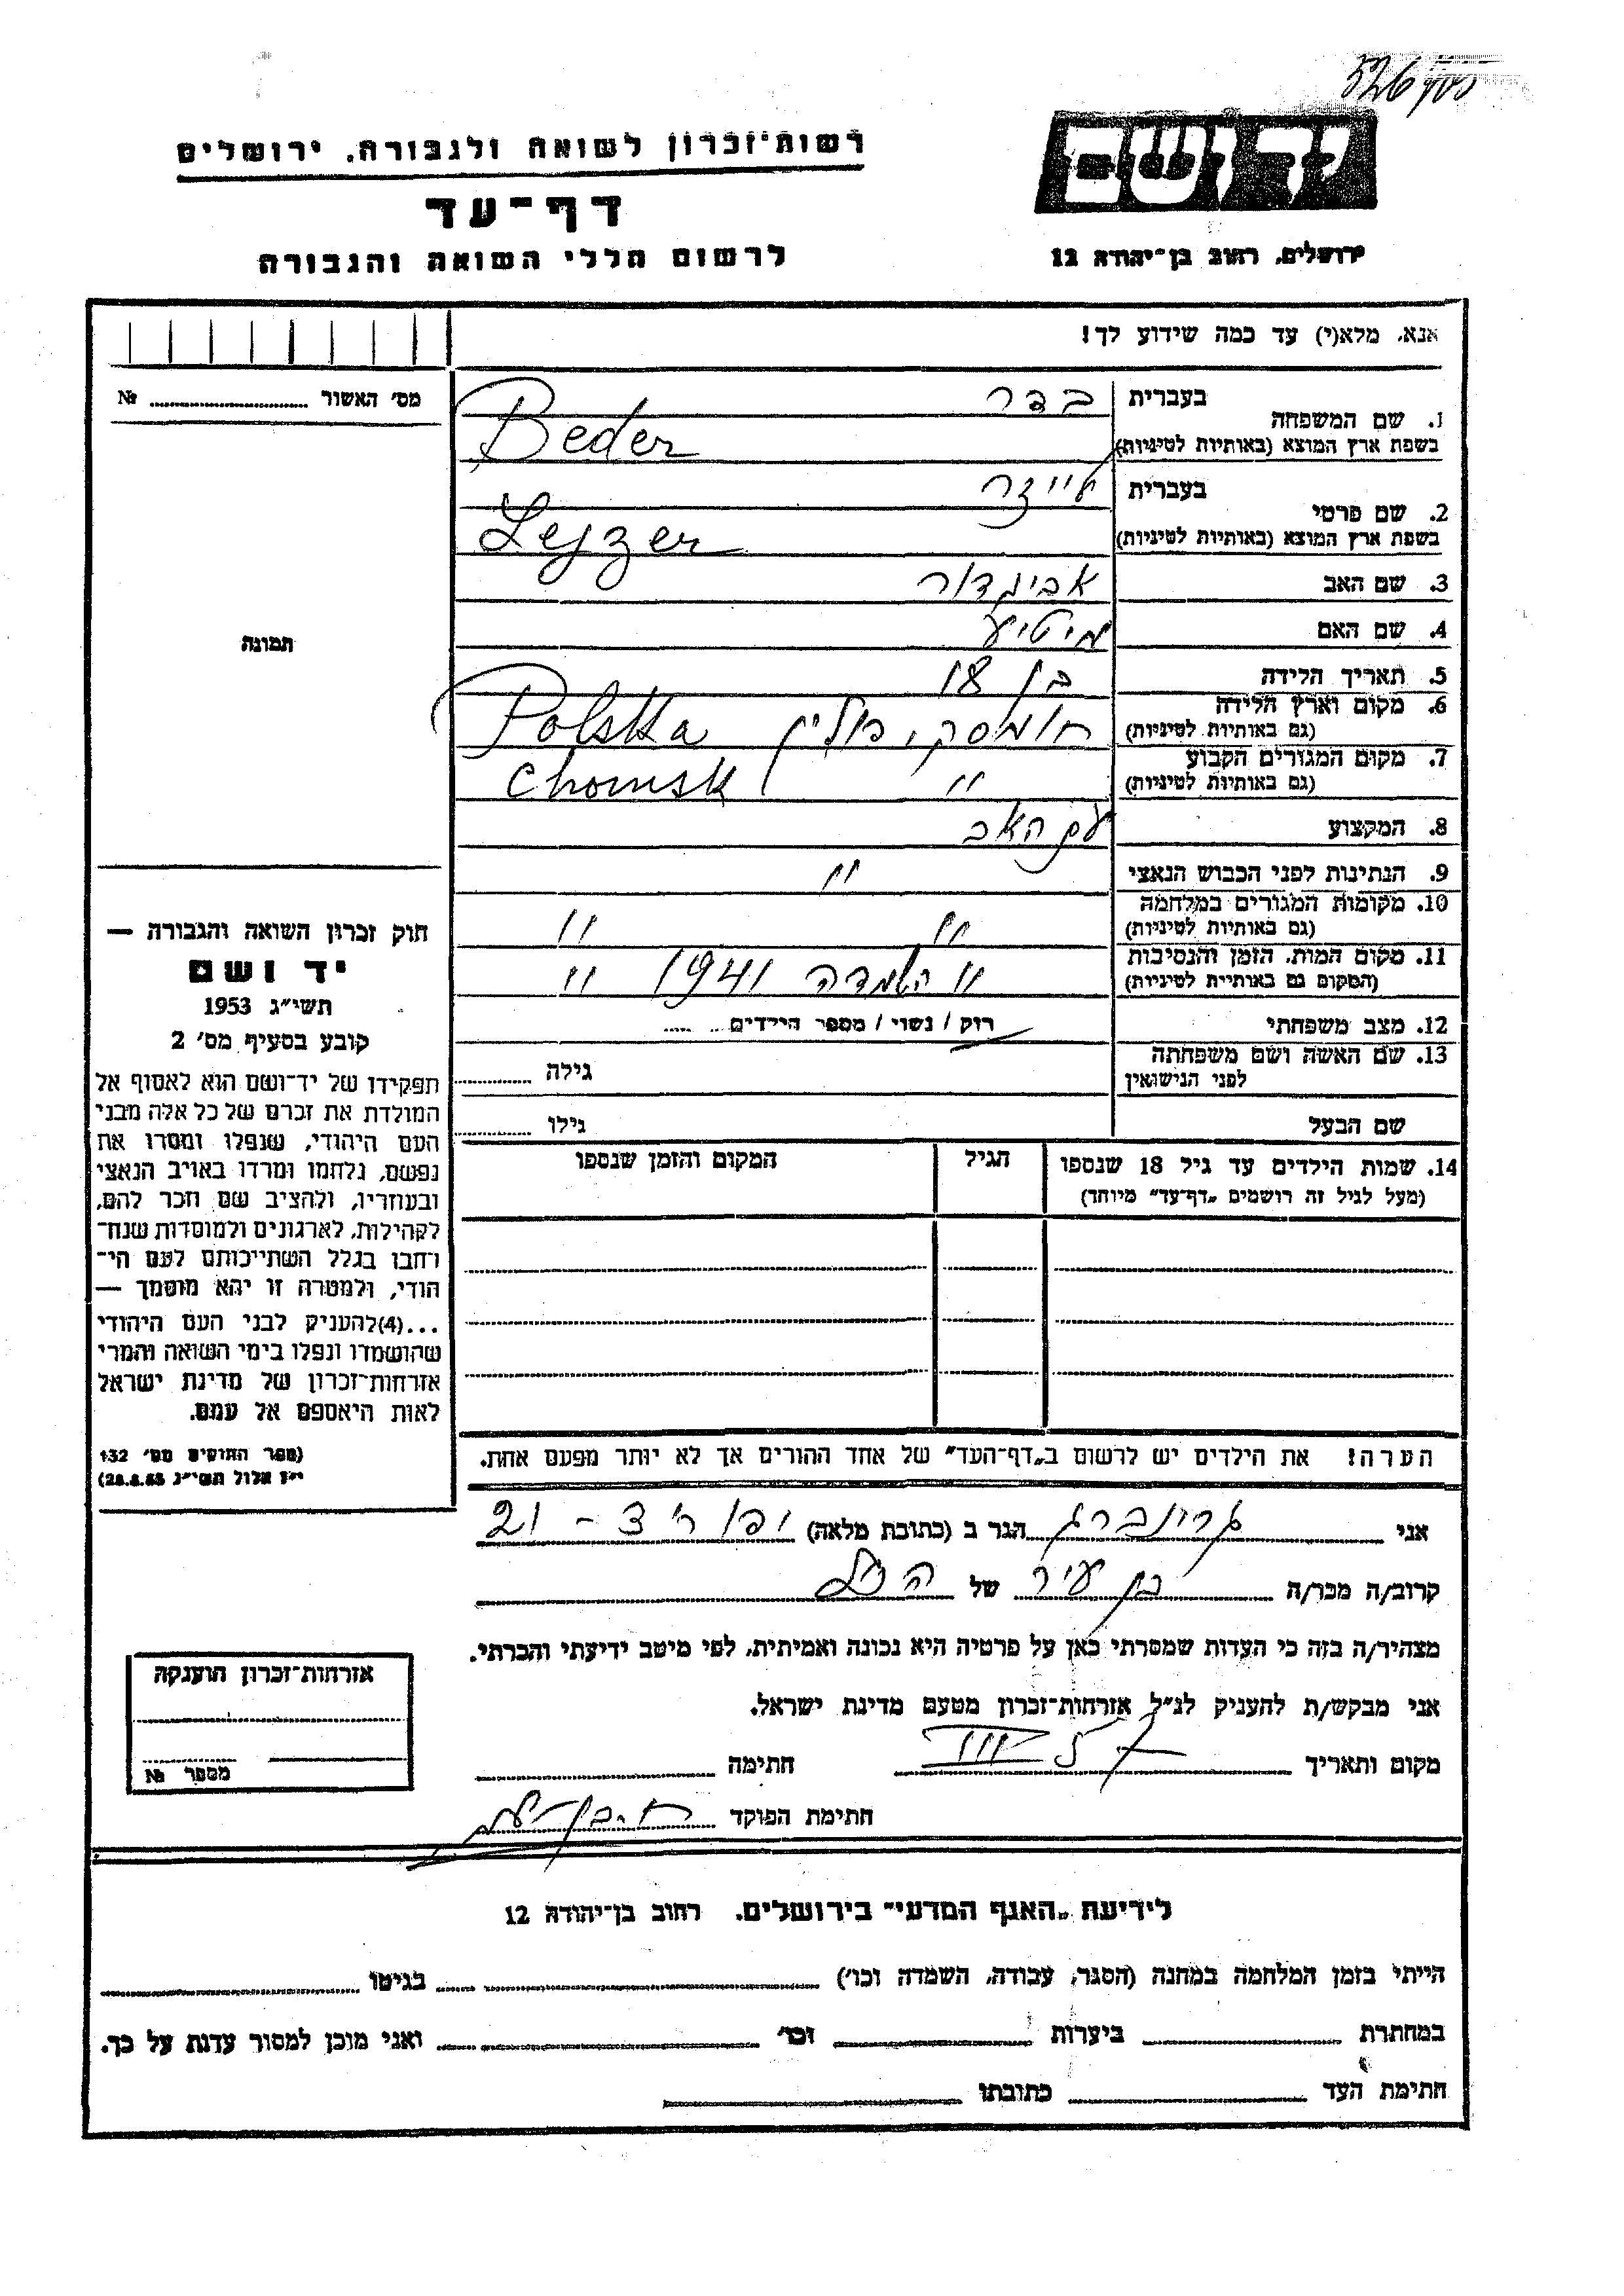 רשות־זכרון לשואה ולגבורה, ירושלים
דף־עד
לרשום חללי השואה והגבורה
יד ושם
ירושלים, רחוב בן־יהודה 12
אנא, מלא(י) עד כמה שידוע לך!
מס׳ האשור № 
תמונה
1. שם המשפחה בעברית בדר
בשפת ארץ המוצא (באותיות לטיניות) Beder
2. שם פרטי בעברית לייזר
בשפת ארץ המוצא (באותיות לטיניות) Lejzer
3. שם האב אביגדור
4. שם האם
5. תאריך הלידה בן 18
6. מקום וארץ הלידה (גם באותיות לטיניות) חומסק, פולין Polska
7. מקום המגורים הקבוע (גם באותיות לטיניות) " Chomsk
8. המקצוע עם האב
9. הנתינות לפני הכבוש הנאצי "
10. מקומות המגורים במלחמה (גם באותיות לטיניות) " "
11. מקום המות, הזמן והנסיבות (המקום גם באותיות לטיניות) " השמדה 1941 "
12. מצב משפחתי רוק / נשוי / מספר הילדים
13. שם האשה ושם משפחתה לפני הנישואין גילה
שם הבעל גילו
14. שמות הילדים עד גיל 18 שנספו (מעל לגיל זה רושמים „דף־עד" מיוחד) הגיל המקום והזמן שנספו
הערה! את הילדים יש לרשום ב„דף־העד" של אחד ההורים אך לא יותר מפעם אחת.
חוק זכרון השואה והגבורה —
יד ושם
תשי״ג 1953
קובע בסעיף מס׳ 2
תפקידו של יד־ושם הוא לאסוף אל
המולדת את זכרם של כל אלה מבני
העם היהודי, שנפלו ומסרו את
נפשם, נלחמו ומרדו באויב הנאצי
ובעוזריו, ולהציב שם וזכר להם,
לקהילות, לארגונים ולמוסדות שנח־
רחבו בגלל השתייכותם לעם הי־
הודי, ולמטרה זו יהא מוסמך —
...(4)להעניק לבני העם היהודי
שהושמדו ונפלו בימי השואה והמרי
אזרחות־זכרון של מדינת ישראל
לאות היאספם אל עמם.
(ספר החוקים מס׳ 132
י״ז אלול תשי״ג 28.8.53)
אני גרינברג הגר ב (כתובת מלאה) יפו 21 -
קרוב/ה מכר/ה בן עיר של הנ״ל
מצהיר/ה בזה כי העדות שמסרתי כאן על פרטיה היא נכונה ואמיתית, לפי מיטב ידיעתי והכרתי.
אני מבקש/ת להעניק לנ״ל אזרחות־זכרון מטעם מדינת ישראל.
מקום ותאריך חתימה
חתימת הפוקד
אזרחות־זכרון הוענקה
מספר №
לידיעת „האגף המדעי" בירושלים, רחוב בן־יהודה 12
הייתי בזמן המלחמה במחנה (הסגר, עבודה, השמדה וכו׳) בגיטו
במחתרת ביערות וכו׳ ואני מוכן למסור עדות על כך.
חתימת העד כתובתו